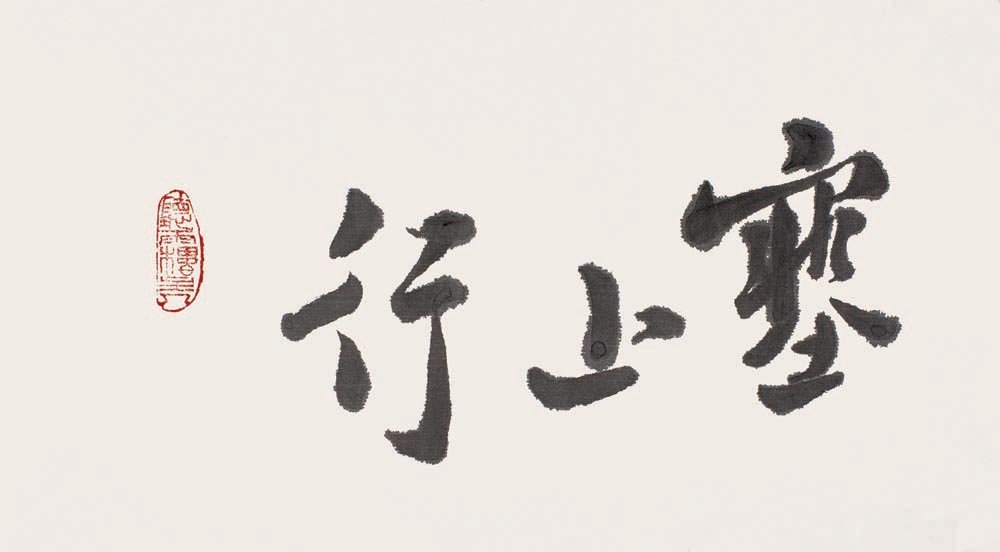 塞上行